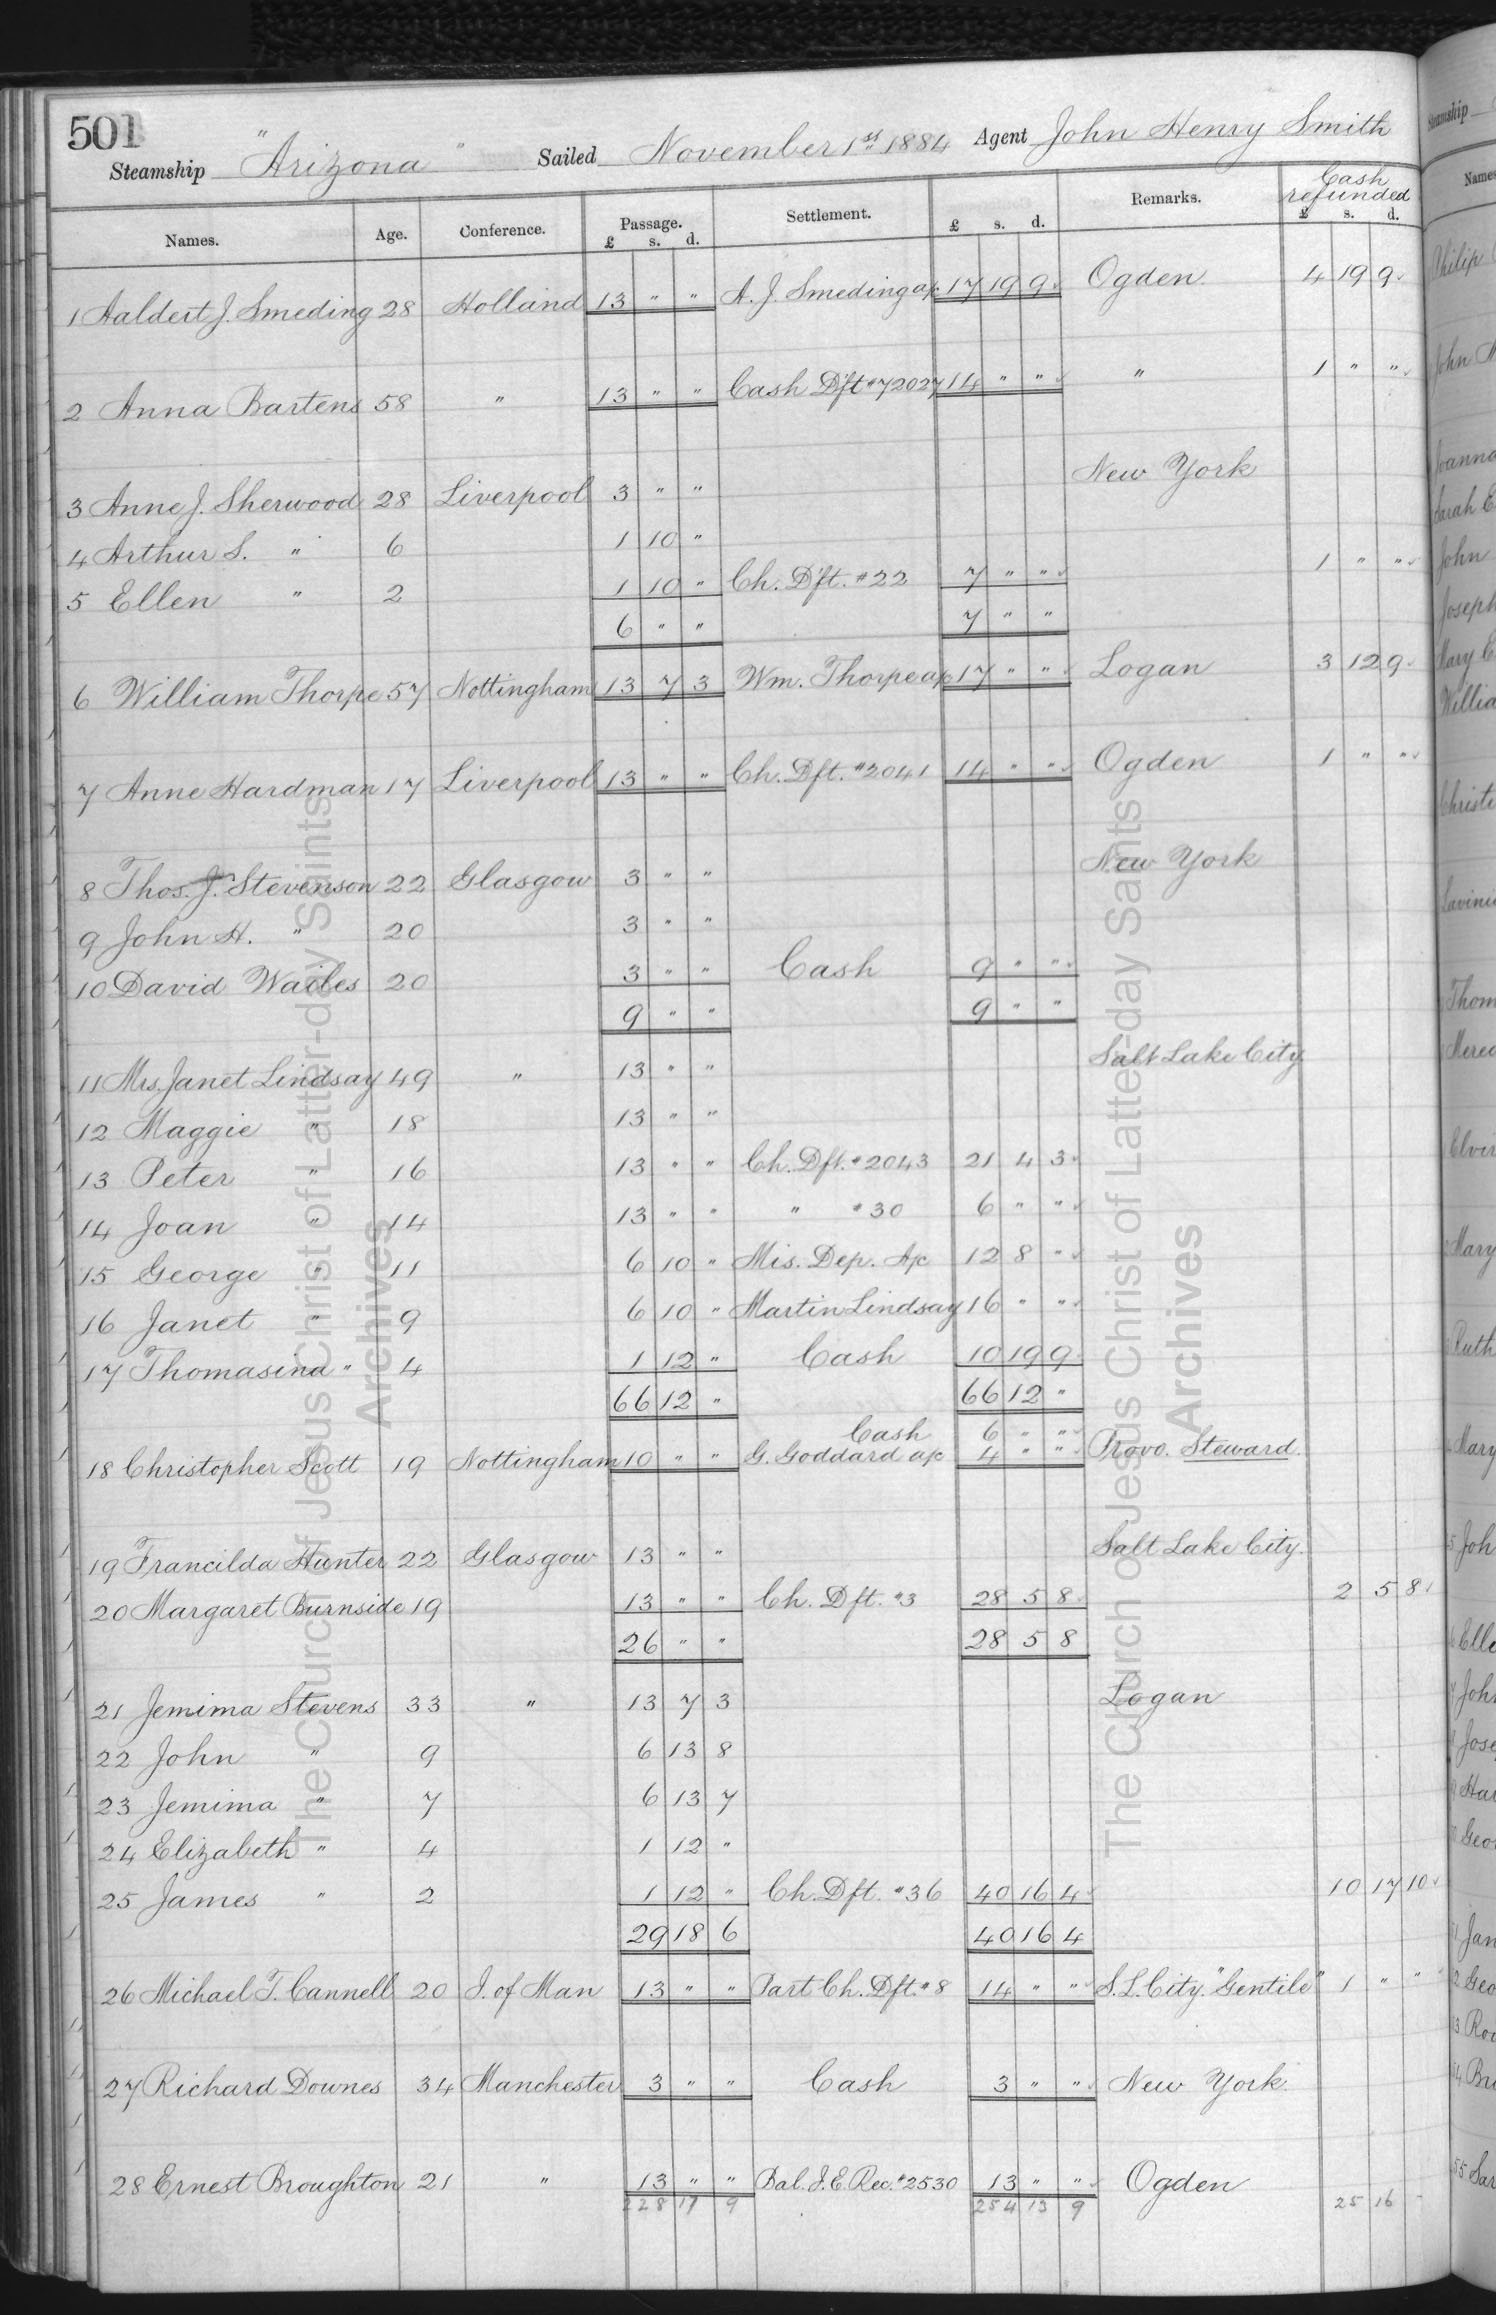 501
Steamship "Arizona" Sailed November 1st 1884 Agent John Henry Smith
Names. Age. Conference. Passage. £ s. d. Settlement. £ s. d. Remarks. Cash refunded £ s. d.
1 Aaldert J. Smeding 28 Holland 13 " " A. J. Smeding a/c 17 19 9 Ogden 4 19 9
2 Anna Bartens 58 " 13 " " Cash Dft #72027 14 " " " 1 " "
3 Anne J. Sherwood 28 Liverpool 3 " " New York
4 Arthur S. " 6 1 10 "
5 Ellen " 2 1 10 " Ch. Dft. #22 7 " " 1 " "
6 " " 7 " "
6 William Thorpe 57 Nottingham 13 7 3 Wm. Thorpe a/c 17 " " Logan 3 12 9
7 Anne Hardman 17 Liverpool 13 " " Ch. Dft. #2041 14 " " Ogden 1 " "
8 Thos. J. Stevenson 22 Glasgow 3 " " New York
9 John H. " 20 3 " "
10 David Wailes 20 3 " " Cash 9 " "
9 " " 9 " "
11 Mrs. Janet Lindsay 49 " 13 " " Salt Lake City
12 Maggie " 18 13 " "
13 Peter " 16 13 " " Ch. Dft. #2043 21 4 3
14 Joan " 14 13 " " " #30 6 " "
15 George " 11 6 10 " Mis. Dep. A/c 12 8 "
16 Janet " 9 6 10 " Martin Lindsay 16 " "
17 Thomasina " 4 1 12 " Cash 10 19 9
66 12 " 66 12 "
Cash 6 " "
18 Christopher Scott 19 Nottingham 10 " " G. Goddard a/c 4 " " Provo. Steward.
19 Francilda Hunter 22 Glasgow 13 " " Salt Lake City.
20 Margaret Burnside 19 13 " " Ch. Dft. #3 28 5 8 2 5 8
26 " " 28 5 8
21 Jemima Stevens 33 " 13 7 3 Logan
22 John " 9 6 13 8
23 Jemima " 7 6 13 7
24 Elizabeth " 4 1 12 "
25 James " 2 1 12 " Ch. Dft. #36 40 16 4 10 17 10
29 18 6 40 16 4
26 Michael T. Cannell 20 I. of Man 13 " " Part Ch. Dft. #8 14 " " S. L. City. "Gentile" 1 " "
27 Richard Downes 34 Manchester 3 " " Cash 3 " " New York.
28 Ernest Broughton 21 " 13 " " Bal. J. E. Rec. #2530 13 " " Ogden
228 17 9 254 13 9 25 16 -
The Church of Jesus Christ of Latter-day Saints
Archives
The Church of Jesus Christ of Latter-day Saints
Archives